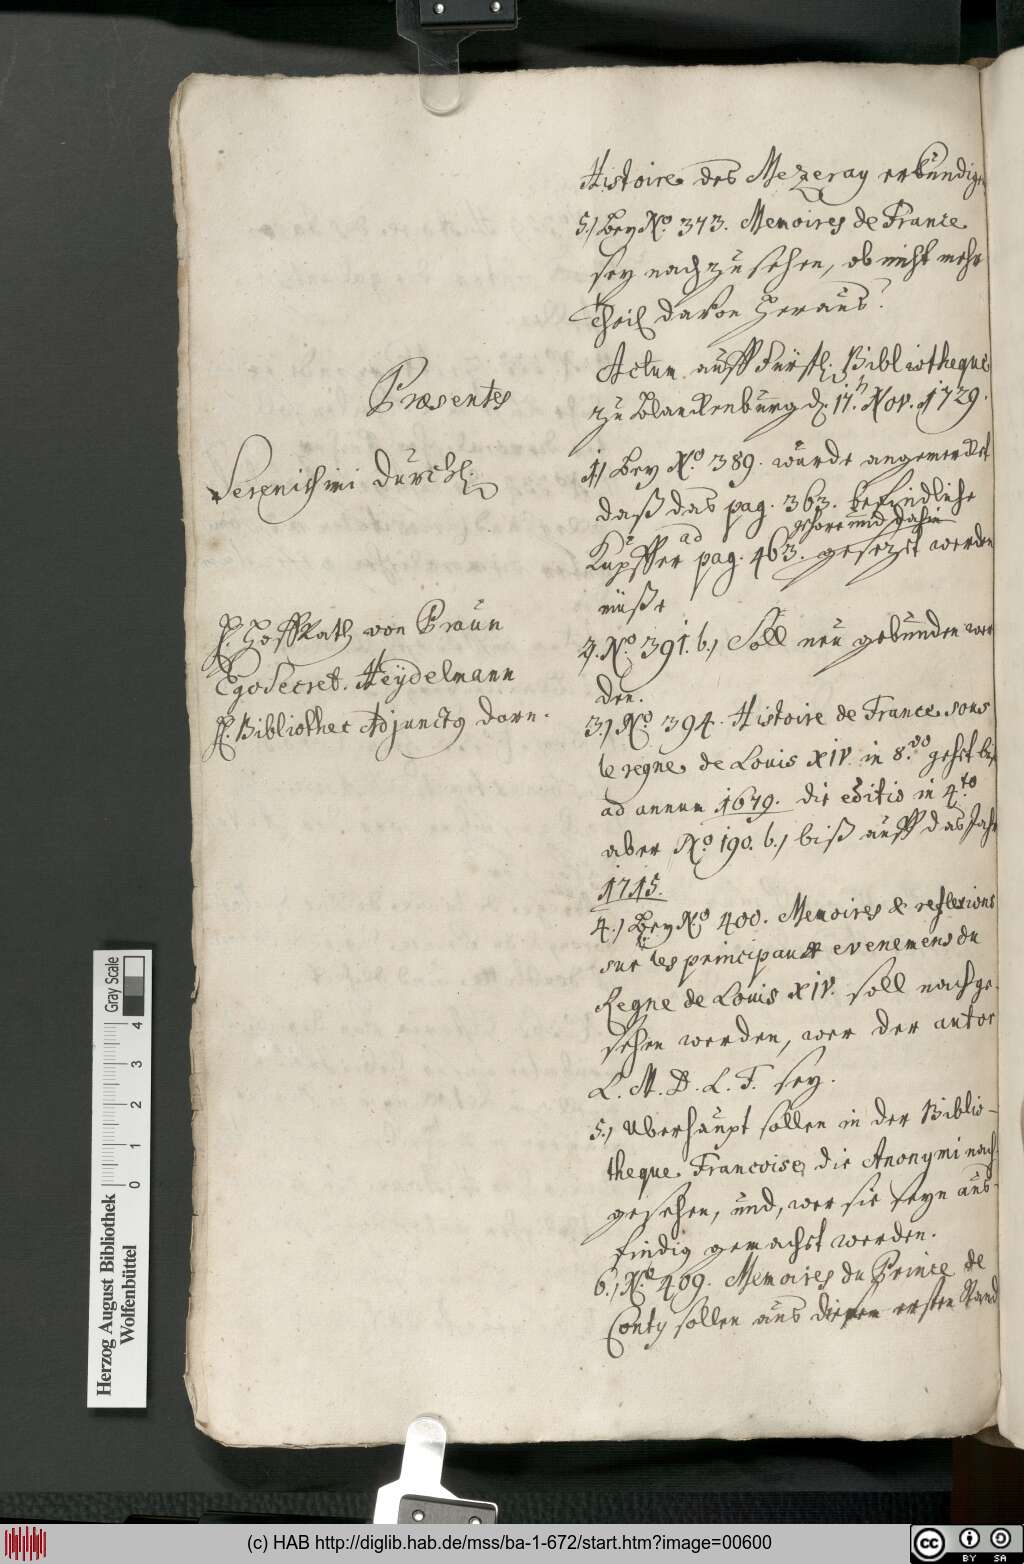 Histoire des Mezeray erkundig
5.) Bey No. 373. Memoires de France
sey nachzusehen, ob nicht mehr
Theil davon heraus?
Actum auff Fürstl. Bibliotheque
zu Blanckenburg d. 17. Nov. 1729.
Præsentes
Serenissimi Durchl.
H. HoffRath von Praun
Ego Secret. Heÿdelmann
H. Bibliothec Adjunctg Dorn.
1.) Bey No 389. wurde angemercket
daß das pag. 363. befindliche
gehöre und dahin
Kupffer ad pag. 463. gesezet werden
müße
2. No. 391. b.) Soll neu gebunden wer
den.
3.) No. 394. Histoire de France sous
le regne de Louis XIV. in 8.vo gehet biß
ad annum 1679. die editio in 4.to
aber No. 190. b.) biß auff das Jahr
1715.
4.) Bey No 400. Memoires & reflexions
sur les principaux evenemens du
Regne de Louis XIV. soll nachge-
sehen werden, wer der autor
L. M. D. L. F. sey.
5.) Uberhaupt sollen in der Biblio-
theque Francoise, die Anonymi nach
gesehen, und, wer sie seyn aus-
findig gemacht werden.
6.) No. 409. Memoires du Prince de
Conty sollen aus diesem ersten Stand
Herzog August Bibliothek
Wolfenbüttel
Gray Scale
0 1 2 3 4
(c) HAB http://diglib.hab.de/mss/ba-1-672/start.htm?image=00600
cc BY SA